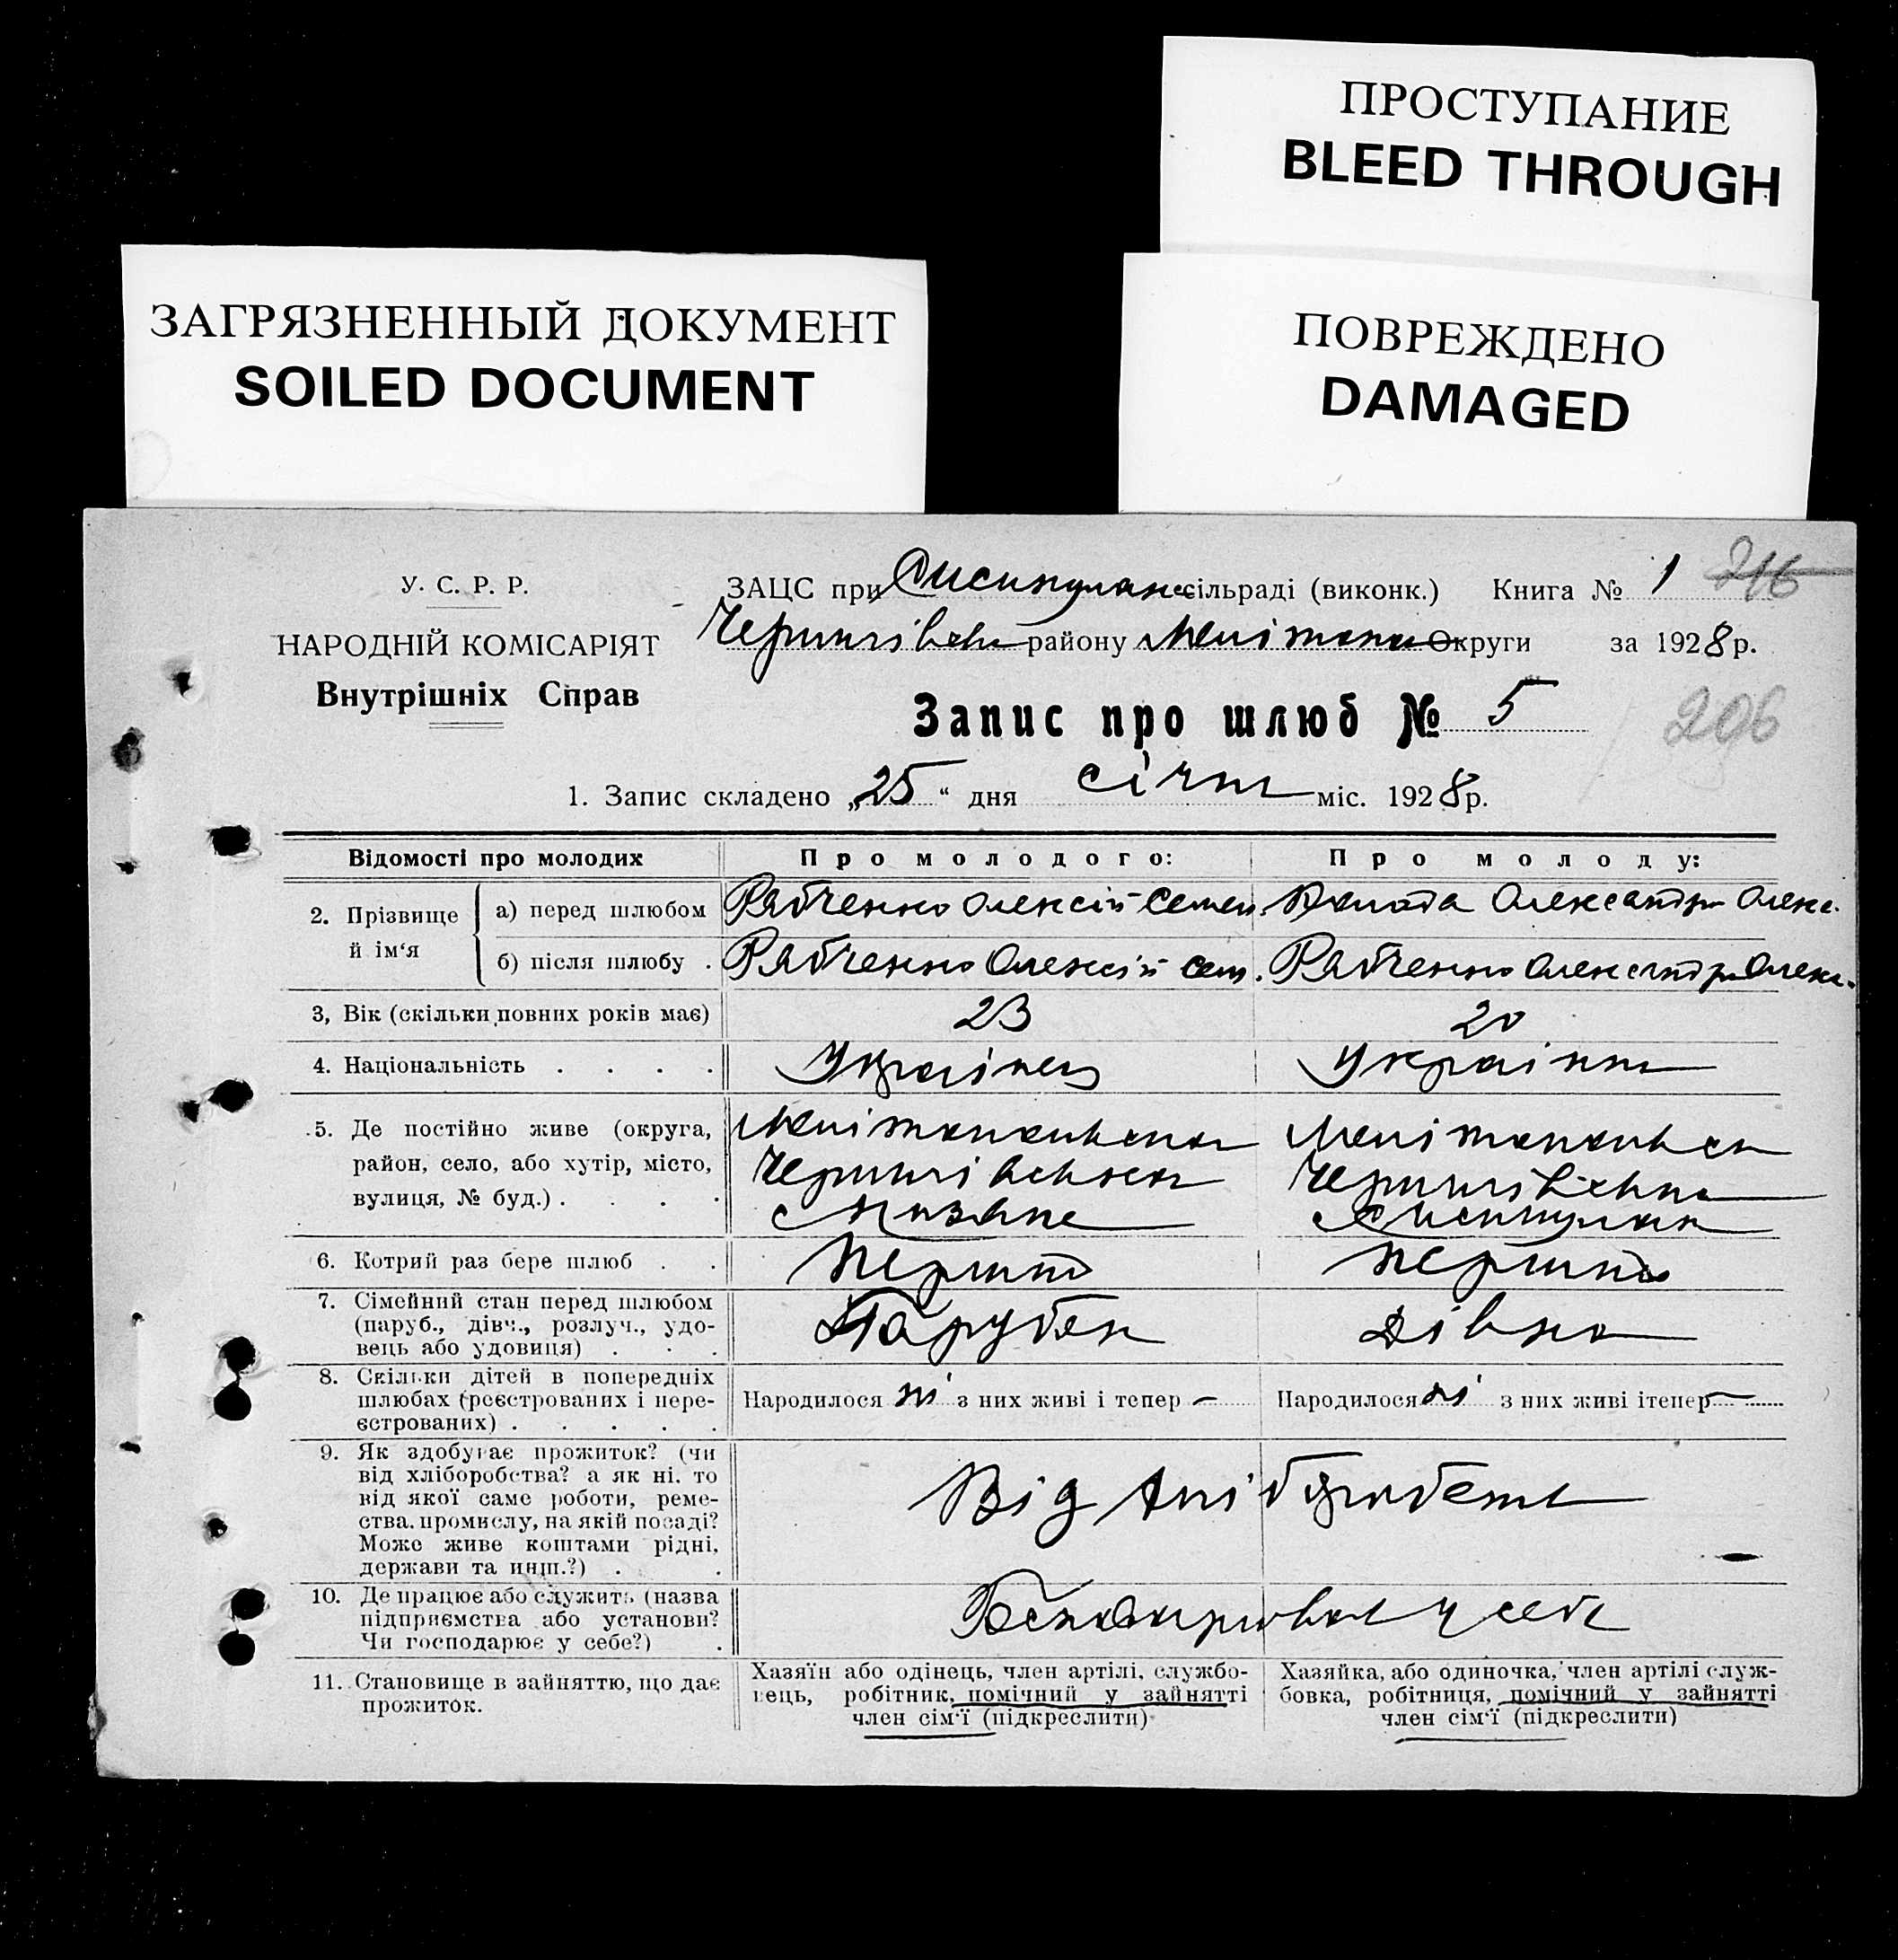 ПРОСТУПАНИЕ
BLEED THROUGH
ЗАГРЯЗНЕННЫЙ ДОКУМЕНТ
SOILED DOCUMENT
ПОВРЕЖДЕНО
DAMAGED
У. С. Р. Р.
НАРОДНІЙ КОМІСАРІЯТ
Внутрішніх Справ
ЗАЦС при сільраді (виконк.) Книга № 1 216
району Округи за 1928 р.
Запис про шлюб № 5
206
1. Запис складено „25“ дня січня міс. 1928 р.
Відомості про молодих
Про молодого:
Про молоду:
2. Прізвище й ім‘я
а) перед шлюбом
Рябченко Олексій Семен.
Олександра Олекс.
б) після шлюбу .
Рябченко Олексій Сем.
Рябченко Олександра Олекс.
3, Вік (скільки повних років має)
23
20
4. Національність . . . .
Українець
Українка
5. Де постійно живе (округа,
район, село, або хутір, місто,
вулиця, № буд.) . . . .
Мелітопольська
Чернигівська
Мелітопольська
Чернигівська
6. Котрий раз бере шлюб . .
перший
перший
7. Сімейний стан перед шлюбом
(паруб., дівч., розлуч., удо-
вець або удовиця) . . .
Парубок
Дівка
8. Скільки дітей в попередніх
шлюбах (реєстрованих і нере-
єстрованих) . . . . .
Народилося ні з них живі і тепер —
Народилося ні з них живі і тепер —
9. Як здобуває прожиток? (чи
від хліборобства? а як ні. то
від якої саме роботи, реме-
ства. промислу, на якій посаді?
Може живе коштами рідні,
держави та инш.?) . .
Від хліборобства
10. Де працює або служить (назва
підприємства або установи?
Чи господарює у себе?) .
у себе
11. Становище в зайняттю, що дає
прожиток.
Хазяїн або одінець, член артілі, службо-
вець, робітник, помічний у зайнятті
член сім‘ї (підкреслити)
Хазяйка, або одиночка, член артілі служ-
бовка, робітниця, помічний у зайнятті
член сім‘ї (підкреслити)